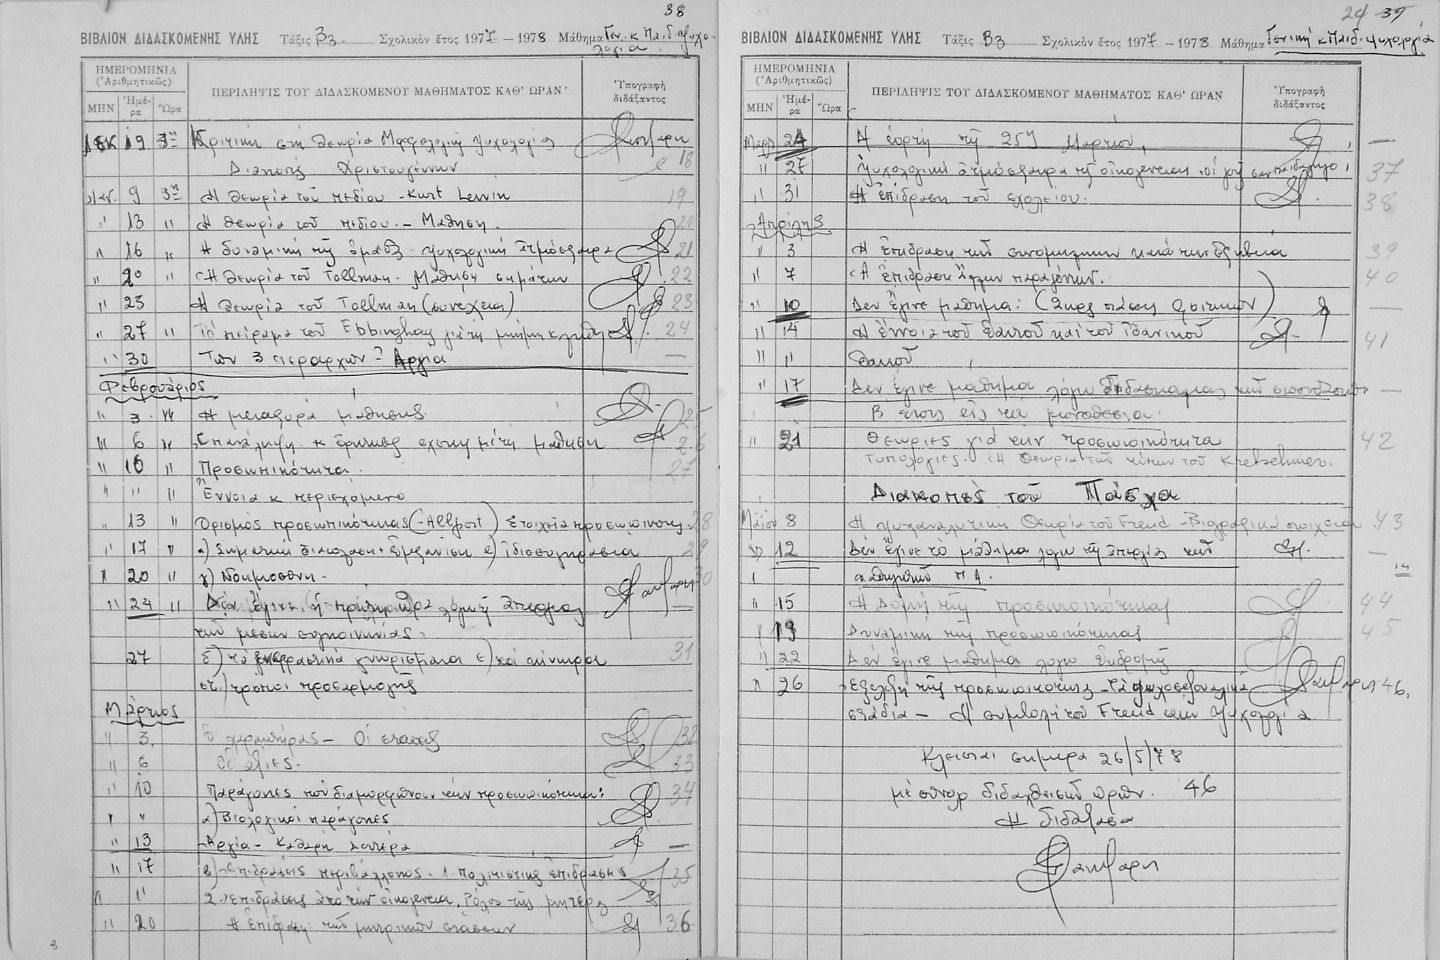 38
ΒΙΒΛΙΟΝ ΔΙΔΑΣΚΟΜΕΝΗΣ ΥΛΗΣ Τάξις Β3 Σχολικὸν ἔτος 1977 – 1978 Μάθημα Γεν. κ Παιδ. ψυχολογία
ΗΜΕΡΟΜΗΝΙΑ
(Ἀριθμητικῶς)
ΜΗΝ Ἡμέρα Ὥρα
ΠΕΡΙΛΗΨΙΣ ΤΟΥ ΔΙΔΑΣΚΟΜΕΝΟΥ ΜΑΘΗΜΑΤΟΣ ΚΑΘ' ΩΡΑΝ
Ὑπογραφὴ διδάξαντος
ΔΕΚ 19 3η Κριτική στή θεωρία Μορφολογική ψυχολογία 18
Διακοπές Χριστουγέννων
Ιαν. 9 3η Ἡ θεωρία τοῦ πεδίου - Kurt Lewin 19
" 13 " Ἡ θεωρία τοῦ πεδίου. - Μάθηση. 20
" 16 " Ἡ δυναμική τῆς ὁμάδος. ψυχολογική ἀτμόσφαιρα 21
" 20 " Ἡ θεωρία τοῦ Tollman. Μάθηση σημάτων 22
" 23 Ἡ θεωρία τοῦ Tollman (συνέχεια) 23
" 27 " Τό πείραμα τοῦ Ebbinghaus γιά τή μνήμη κ λήθη 24
" 30 Τῶν 3 ιεραρχῶν = Αργία —
Φεβρουάριος
" 3 " Ἡ μεταφορά μάθησης 25
" 6 " Επανάληψη κ ἐρωτήσεις σχετικ μέ τή μάθηση 26
" 10 " Προσωπικότητα. 27
" " " Ἔννοια κ περιεχόμενο
" 13 " Ορισμός προσωπικότητας (-Allport) Στοιχεία προσωπικότητ. 28
" 17 " α) Σωματική διάπλαση + εμφάνιση β) ἰδιοσυγκρασία 29
" 20 " γ) Νοημοσύνη. 30
" 24 " Δέν ἔγινε ἡ πρώτη ὥρα λόγῳ ἀπεργίας —
τῶν μέσων συγκοινωνίας.
27 δ) τά ἐκφραστικά γνωρίσματα ε) καί κίνητρα 31
στ.) τρόποι προσαρμογῆς
Μάρτιος
" 3. Ὁ χαρακτήρας - Οἱ στάσεις 32
" 6 Οἱ ἀξίες. 33
" 10 Παράγοντες πού διαμορφώνουν τήν προσωπικότητα: 34
" " α) Βιολογικοί παράγοντες
" 13 Αργία - Καθαρή Δευτέρα —
" 17 β) ἐπιδράσεις περιβάλλοντος. 1. πολιτιστικές ἐπιδράσεις 35
" " 2. ἐπιδράσεις ἀπό τήν οἰκογένεια. Ρόλος τῆς μητέρας
" 20 Ἡ ἐπίδραση τῶν μητρικῶν στάσεων 36
8
24 39
ΒΙΒΛΙΟΝ ΔΙΔΑΣΚΟΜΕΝΗΣ ΥΛΗΣ Τάξις Β3 Σχολικὸν ἔτος 1977 – 1978 Μάθημα Γενική κ Παιδ. ψυχολογία
ΗΜΕΡΟΜΗΝΙΑ
(Ἀριθμητικῶς)
ΜΗΝ Ἡμέρα Ὥρα
ΠΕΡΙΛΗΨΙΣ ΤΟΥ ΔΙΔΑΣΚΟΜΕΝΟΥ ΜΑΘΗΜΑΤΟΣ ΚΑΘ' ΩΡΑΝ
Ὑπογραφὴ διδάξαντος
Μαρτ 24 Ἡ ἑορτή τῆς 25ης Μαρτίου. —
" 27 Ψυχολογική ἀτμόσφαιρα τῆς οἰκογένειας. οἱ γονεῖς σαν παιδαγωγοί 37
" 31 Ἡ ἐπίδραση τοῦ σχολείου. 38
Απρίλης
" 3 Ἡ ἐπίδραση τῶν συνομηλίκων κατά τήν ἐφηβεία 39
" 7 Ἡ ἐπίδραση ἄλλων παραγόντων. 40
" 10 Δεν ἔγινε μάθημα: ( φοιτητῶν) —
" 14 Ἡ ἔννοια τοῦ ἑαυτοῦ καί τοῦ ἰδανικοῦ 41
" " ἑαυτοῦ
" 17 Δεν ἔγινε μάθημα λόγω διδασκαλίας τῶν σπουδαστῶν —
Β ἔτους εἰς τά μονοθέσια.
" 21 Θεωρίες γιά τήν προσωπικότητα 42
τυπολογίες. Ἡ Θεωρία τῶν τύπων τοῦ Kretschmer.
Διακοπές τοῦ Πάσχα
Μάϊου 8 Ἡ ψυχαναλυτική Θεωρία τοῦ Freud - Βιογραφικά στοιχεῖα 43
" 12 Δέν ἔγινε τό μάθημα λόγω τῆς ἀπεργίας τῶν —
καθηγητῶν Π.Α.
" 15 Ἡ Δομή τῆς προσωπικότητας 44
" 19 Δυναμική τῆς προσωπικότητας 45
" 22 Δέν ἔγινε μάθημα λόγω ἐκδρομῆς
" 26 Εξέλιξη τῆς προσωπικότητας - Τά ψυχοσεξουαλικά 46.
στάδια - Ἡ συμβολή τοῦ Freud στήν ψυχολογία
Κλείεται σήμερα 26/5/78
μέ σύνολ διδαχθεισῶν ὡρῶν. 46
Ἡ διδάξασα